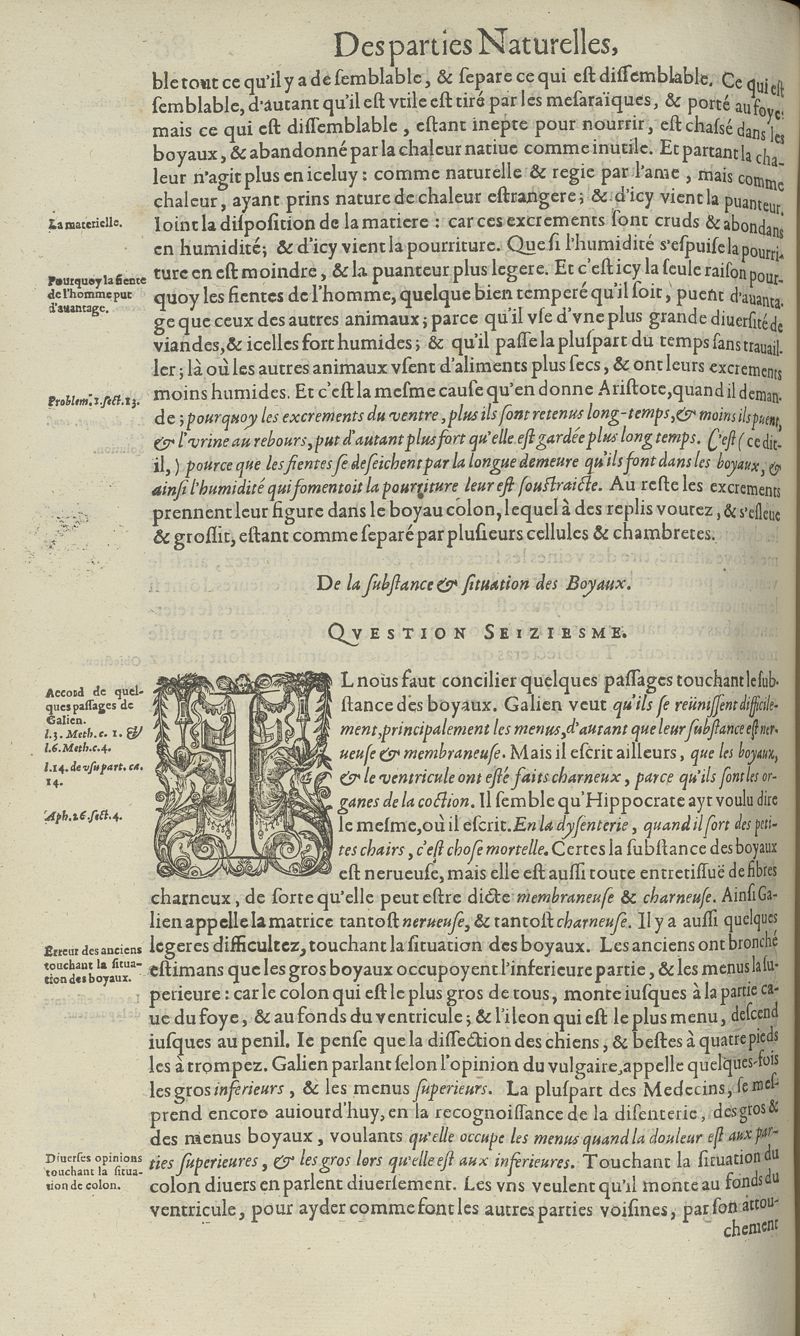 Des parties Naturelles,
ble tout ce qu'il y a de ſemblable, & ſepare ce qui eſt diſſemblable. Ce qui eſt
ſemblable, d'autant qu'il eſt vtile eſt tiré par les meſaraïques, & porté au foye:
mais ce qui eſt diſſemblable, eſtant inepte pour nourrir, eſt chaſsé dans les
boyaux, & abandonné par la chaleur natiue comme inutile. Et partant la cha-
leur n'agit plus en iceluy: comme naturelle & regie par l'ame, mais comme
chaleur, ayant prins nature de chaleur eſtrangere; & d'icy vient la puanteur.
La materielle.
Ioint la diſpoſition de la matiere: car ces excrements ſont cruds & abondans
en humidité; & d'icy vient la pourriture. Que ſi l'humidité s'eſpuiſe la pourri-
Pourquoy la fiente
de l'homme put
d'auantage.
ture en eſt moindre, & la puanteur plus legere. Et c'eſt icy la ſeule raiſon pour-
quoy les fientes de l'homme, quelque bien temperé qu'il ſoit, puent d'auanta-
ge que ceux des autres animaux; parce qu'il vſe d'vne plus grande diuerſité de
viandes, & icelles fort humides; & qu'il paſſe la pluſpart du temps ſans trauail-
ler; là où les autres animaux vſent d'aliments plus ſecs, & ont leurs excrements
Problem. 1. ſect. 13.
moins humides. Et c'eſt la meſme cauſe qu'en donne Ariſtote, quand il deman-
de; pourquoy les excrements du ventre, plus ils ſont retenus long-temps, & moins ils puent,
& l'vrine au rebours, put d'autant plus fort qu'elle eſt gardée plus long temps. C'eſt (ce dit-
il,) pource que les fientes ſe deſeichent par la longue demeure qu'ils font dans les boyaux, &
ainſi l'humidité qui fomentoit la pourriture leur eſt ſouſtraicte. Au reſte les excrements
prennent leur figure dans le boyau colon, lequel à des replis voutez, & s'eſleue
& groſſit, eſtant comme ſeparé par pluſieurs cellules & chambretes.
De la ſubſtance & ſituation des Boyaux.
QVESTION SEIZIESME.
Accord de quel-
ques paſſages de
Galien.
l. 3. Meth. c. 1. &
l. 6. Meth. c. 4.
l. 14. de vſu part. ca.
14.
Aph. 26. ſect. 4.
IL nous faut concilier quelques paſſages touchant le ſub-
ſtance des boyaux. Galien veut qu'ils ſe reüniſſent difficile-
ment, principalement les menus, d'autant que leur ſubſtance eſt ner-
ueuſe & membraneuſe. Mais il eſcrit ailleurs, que les boyaux,
& le ventricule ont eſté faits charneux, parce qu'ils ſont les or-
ganes de la coction. Il ſemble qu'Hippocrate ayt voulu dire
le meſme, où il eſcrit. En la dyſenterie, quand il ſort des peti-
tes chairs, c'eſt choſe mortelle. Certes la ſubſtance des boyaux
eſt nerueuſe, mais elle eſt auſſi toute entretiſſuë de fibres
charneux, de ſorte qu'elle peut eſtre dicte membraneuſe & charneuſe. Ainſi Ga-
lien appelle la matrice tantoſt nerueuſe, & tantoſt charneuſe. Il y a auſſi quelques
Erreur des anciens
touchant la ſitua-
tion des boyaux.
legeres difficultez, touchant la ſituation des boyaux. Les anciens ont bronché
eſtimans que les gros boyaux occupoyent l'inferieure partie, & les menus la ſu-
perieure: car le colon qui eſt le plus gros de tous, monte iuſques à la partie ca-
ue du foye, & au fonds du ventricule; & l'ileon qui eſt le plus menu, deſcend
iuſques au penil. Ie penſe que la diſſection des chiens, & beſtes à quatre pieds
les à trompez. Galien parlant ſelon l'opinion du vulgaire, appelle quelques-fois
les gros inferieurs, & les menus ſuperieurs. La pluſpart des Medecins, ſe meſ-
prend encore auiourd'huy, en la recognoiſſance de la diſenterie, des gros &
des menus boyaux, voulants qu'elle occupe les menus quand la douleur eſt aux par-
Diuerſes opinions
touchant la ſitua-
tion de colon.
ties ſuperieures, & les gros lors qu'elle eſt aux inferieures. Touchant la ſituation du
colon diuers en parlent diuerſement. Les vns veulent qu'il monte au fonds du
ventricule, pour ayder comme font les autres parties voiſines, par ſon attou-
chement